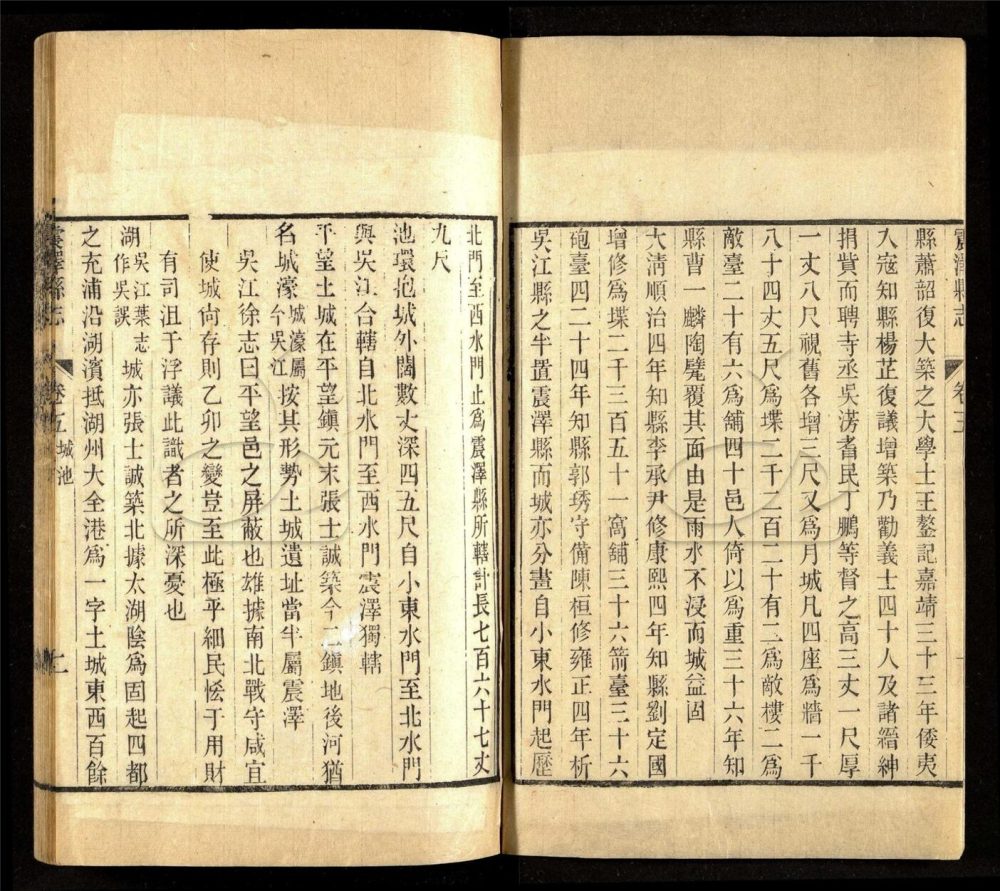 震澤縣志 卷五
縣蕭韶復大築之大學士王鏊記嘉靖三十三年倭夷
入寇知縣楊芷復議增築乃勸義士四十人及諸縉紳
捐貲而聘寺丞吳涝耆民丁鵬等督之高三丈一尺厚
一丈八尺視舊各增三尺又爲月城凡四座爲牆一千
八十四丈五尺爲堞二千二百二十有二爲敵樓二爲
敵臺二十有六爲舖四十邑人倚以爲重三十六年知
縣曹一麟陶甓覆其面由是雨水不浸而城益固
大淸順治四年知縣李承尹修康熙四年知縣劉定國
增修爲堞二千三百五十一窩舖三十六箭臺三十六
砲臺四二十四年知縣郭琇守備陳桓修雍正四年析
吳江縣之半置震澤縣而城亦分畫自小東水門起歷
北門至西水門止爲震澤縣所轄計長七百六十七丈
九尺
池環抱城外闊數丈深四五尺自小東水門至北水門
與吳江合轄自北水門至西水門震澤獨轄
平望土城在平望鎭元末張士誠築今鎭地後河猶
名城濠城濠屬今吳江按其形勢土城遺址當半屬震澤
吳江徐志曰平望邑之屏蔽也雄據南北戰守咸宜
使城尙存則乙卯之變豈至此極乎細民恡于用財
有司沮于浮議此識者之所深憂也
湖吳江葉志作吳誤城亦張士誠築北據太湖陰爲固起四都
之充浦沿湖濱抵湖州大全港爲一字土城東西百餘
震澤縣志 卷五 城池